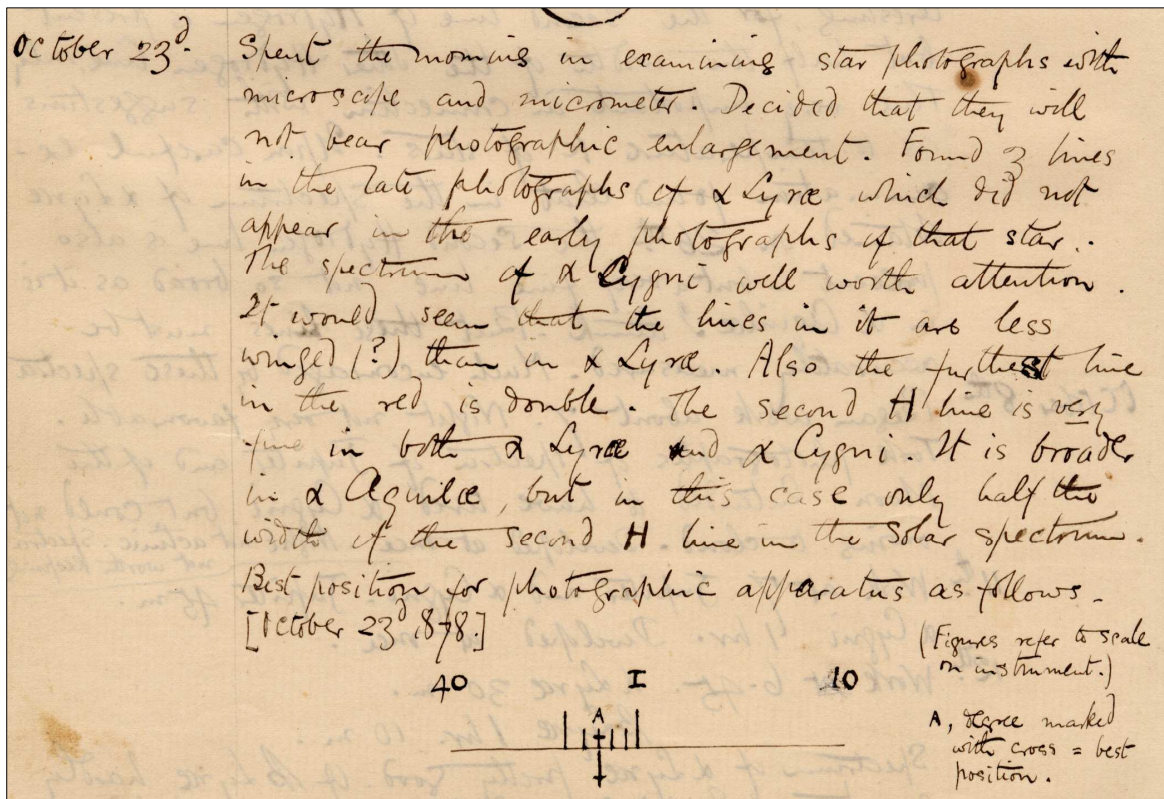 October 23d. Spent the morning in examining star photographs with
microscope and micrometer. Decided that they will
not bear photographic enlargement. Found 3 lines
in the late photographs of α Lyræ which did not
appear in the early photographs of that star.
The spectrum of α Cygni well worth attention.
It would seem that the lines in it are less
winged (?) than in α Lyræ. Also the furthest line
in the red is double. The second H line is very
fine in both α Lyræ and α Cygni. It is broader
in α Aquilæ, but in this case only half the
width of the second H line in the Solar spectrum.
Best position for photographic apparatus as follows.
[October 23d 1878.]
(Figures refer to scale
on instrument.)
40 I 10
A
A, degree marked
with cross = best
position.